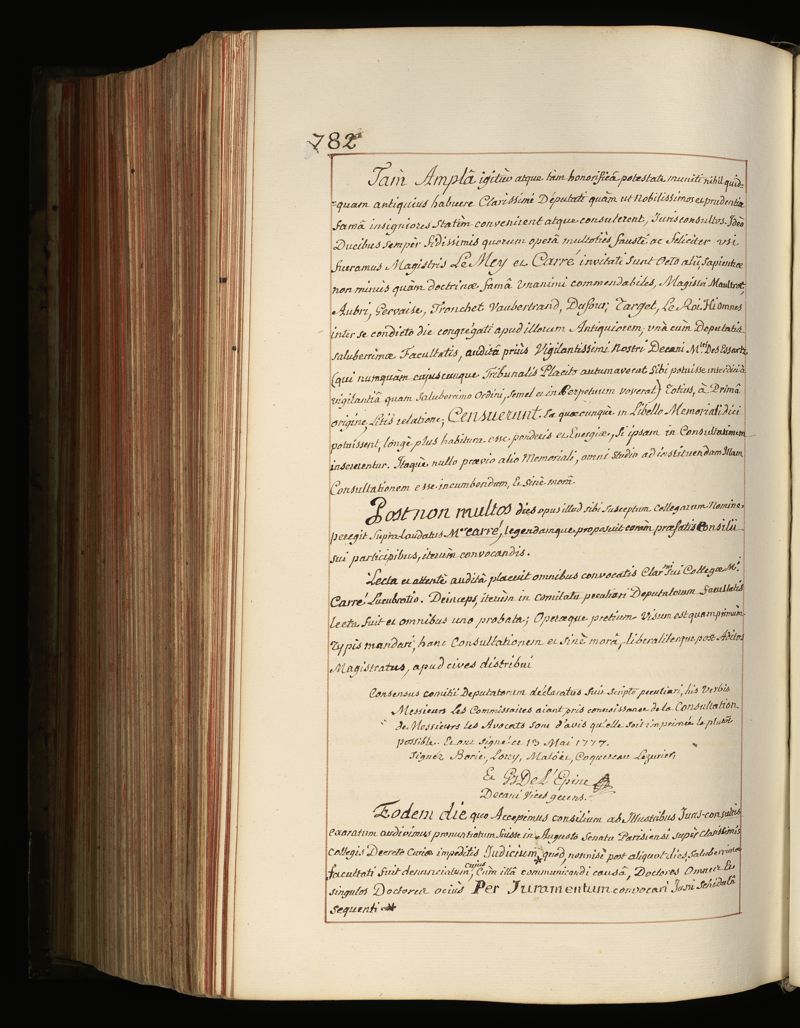 782
Tam Amplâ igitur atque tàm honorificâ potestate muniti nihil quid=
=quam antiquius habuere Clarissimi Deputati quàm ut Nobilissimos et prudentiæ
famâ insigniores Statìm convenirent atque consulerent, Jurisconsultos. Ideò
Ducibus semper fidissimis quorum operâ multoties fauste ac feliciter usi
fueramus Magistris Le Mey et Carré invitati sunt Octo alii, sapientiæ
non minùs quàm doctrinæ famâ unanimi commendabiles, Magistri Maultrot,
Aubri, Gervaise, Tronchet Vaubertrand, Dufour, Target, Le Roi. Hi omnes
inter se condicto die congregati apud illorum Antiquiorem, unà cùm Deputatis
saluberrimæ Facultatis, auditâ priùs Vigilantissimi nostri Decani M.tri Des Essartz
(qui numquàm cujuscunque Tribunalis Placito autumaverat sibi potuisse interdici à
vigilantiâ quam saluberrimo Ordini, semel et in Perpetuum voverat) totius, à Primâ
origine, Litis relatione, Censuerunt. Ea quæcunque in Libello Memoriali dici
potuissent, longè plus habitura esse ponderis et Energiæ, si ipsam in Consultationem
insererentur. Itaquè nullo prævio alio Memoriali, omni studio ad instituendam Illam
Consultationem esse incumbendum, & sinè morâ.
Post non multos dies opus illud sibi susceptum Collegarum Nomine,
peregit Supra laudatus M.er Carré, legendamque proposuit coràm præfatis Consilii
sui participibus, iterùm convocandis.
Lecta et attentè audita placuit omnibus convocatis Clar.mi sui Collegæ M.i
Carré Lucubratio. Deinceps, iterùm in comitatu peculiari Deputatorum Facultatis
lecta fuit et omnibus uno probata; Operæque pretium Visum est quamprimùm
Typis mandari, hanc Consultationem et sinè morâ, liberaliterque post Aditos
Magistratus, apud cives distribui
Consensus comitii Deputatorum declaratus fuit scripto peculiari, his Verbis
Messieurs Les Commissaires aiant pris connoissance de la Consultation
de Messieurs les Avocats sont d'avis qu'elle soit imprimée le plutôt
possible. Et ont signé ce 13 Mai 1777.
Signés Borie, Lorry, Maloët, Coquereau Lezurier
Et B. De L'Epine
Decani Vices gerens.
Eodem die quo Accepimus consilium ab Illustribus Juris-consultis
exaratum audivimus pronuntiatum fuisse in Augusto Senatu Parisiensi super clarissimis
collegis Decreto Curiæ impeditis Judicium, * quod nonnisi post aliquot dies saluberrimæ
facultati fuit denunciatum; cujus
Cùm illâ communicandi causâ, Doctores Omnes Et
singulos Doctores ociùs Per Juramentum convocari Jussi Schedulâ
sequenti *